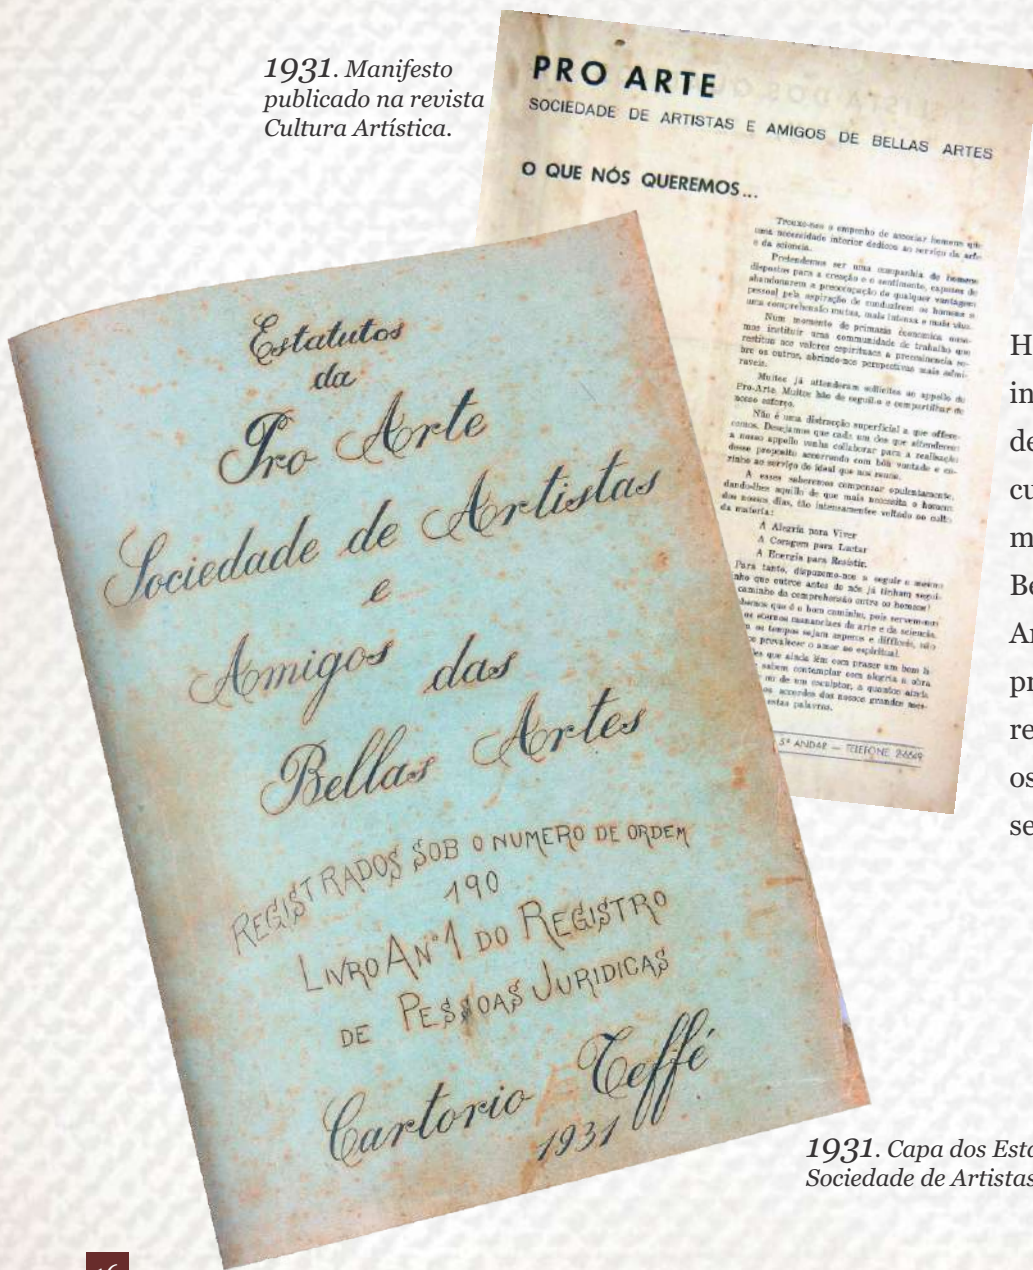 1931. Manifesto
publicado na revista
Cultura Artística.
PRO ARTE
SOCIEDADE DE ARTISTAS E AMIGOS DE BELLAS ARTES
O QUE NÓS QUEREMOS...
Trouxe-nos o empenho de associar homens que
uma necessidade interior dedicou ao serviço da arte
e da sciencia.
Pretendemos ser uma companhia de homens
dispostos para a creação e o sentimento, capazes de
abandonarem a preoccupação de qualquer vantagem
pessoal pela aspiração de conduzirem os homens a
uma comprehensão mutua, mais intensa e mais
Num momento de primazia economica
mos instituir uma communidade de trabalho que
restitua aos valores espirituaes a preeminencia so-
bre os outros, abrindo-nos perspectivas mais admi-
raveis.
Muitos já attenderam sollicitos ao appello de
Pro-Arte. Muitos hão de seguil-o e compartilhar de
nosso esforço.
Não é uma distracção superficial a que offere-
cemos. Desejamos que cada um dos que attenderem
a nosso appello venha collaborar para a realisação
desse proposito accorrendo com bôa vontade e ca-
rinho ao serviço do ideal que nos reune.
A esses saberemos compensar opulentamente,
dando-lhes aquillo de que mais necessita o homem
dos nossos dias, tão intensamente voltado ao culto
da materia:
A Alegria para Viver
A Coragem para Luctar
A Energia para Resistir.
Para tanto, dispuzemo-nos a seguir o mesmo
nho que outros antes de nós já tinham segui-
caminho da comprehensão entre os homens!
bemos que é o bom caminho, pois servem-nos
os eternos mananciaes da arte e da sciencia.
os tempos sejam asperos e difficeis, não
prevalecer o amor ao espiritual.
les que ainda lêm com prazer um bom li
sabem contemplar com alegria a obra
ou de um esculptor, a quantos ainda
os accordes dos nossos grandes mes-
estas palavras.
5º ANDAR — TELEFONE 2-6649
Estatutos
da
Pro Arte
Sociedade de Artistas
e
Amigos das
Bellas Artes
REGISTRADOS SOB O NUMERO DE ORDEM
190
LIVRO A Nº 1 DO REGISTRO
DE PESSOAS JURIDICAS
Cartorio Teffé
1931
H
in
de
cu
m
Be
Ar
pr
re
os
se
1931. Capa dos Esta
Sociedade de Artistas
16